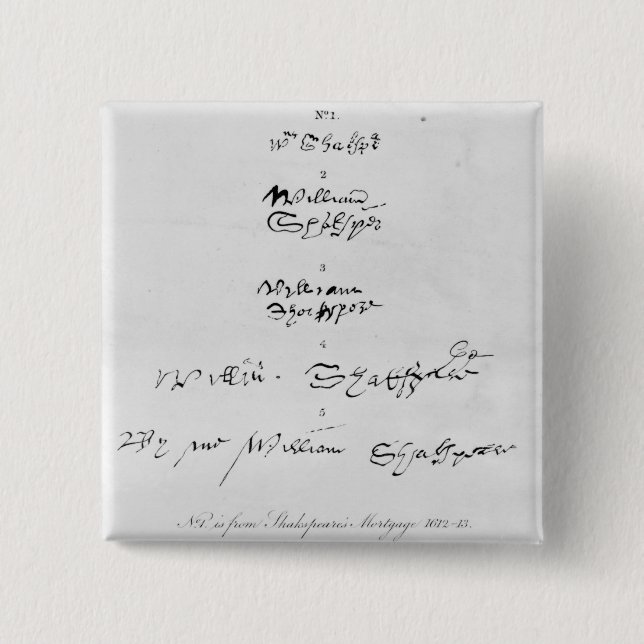 No. 1.
Wm Shakspe
2
William
Shakspere
3
William
Shakspere
4
Willm. Shakspere
5
By me William Shakspeare
No. 1. is from Shakspeare's Mortgage 1612-13.